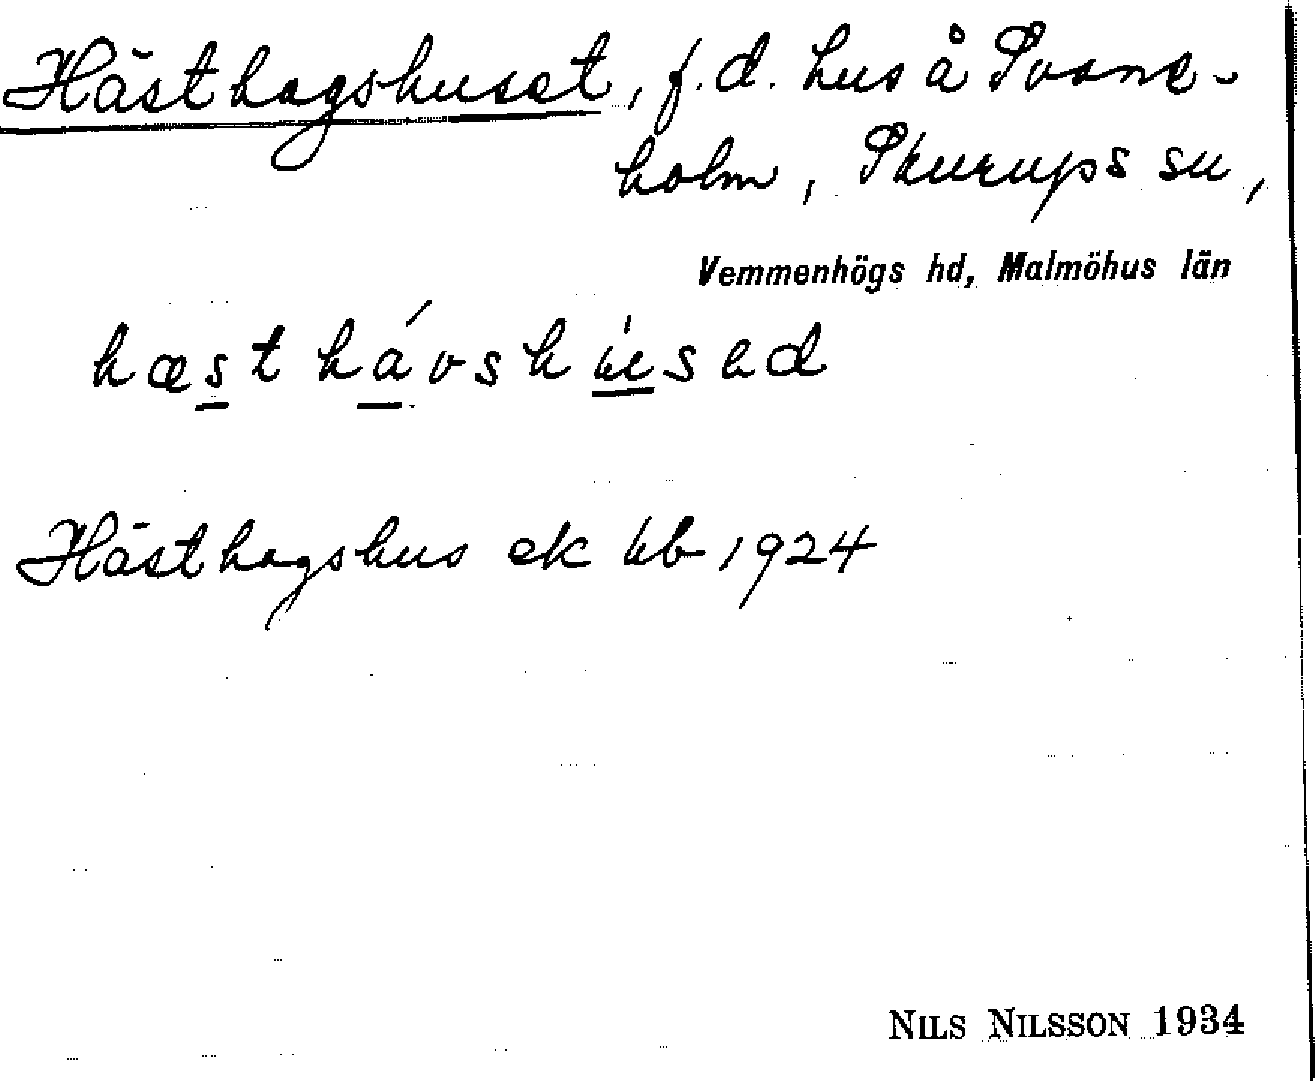 Hästhagshuset, f.d. hus å Svane-
holm, Skurups sn,
Vemmenhögs hd, Malmöhus län
hæst hávshúsəd
Hästhagshus ek kb 1924
NILS NILSSON 1934